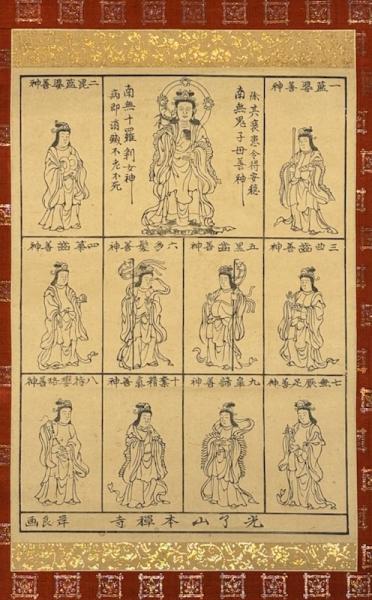 一藍婆善神
除其衰患令得安穏
南無鬼子母善神
南無十羅刹女神
病即消滅不老不死
二毘藍婆善神
三曲齒善神
五黒齒善神
六多髪善神
四華齒善神
七無厭足善神
九皐諦善神
十奪精氣善神
八持瓔珞善神
光了山本禪寺
良画